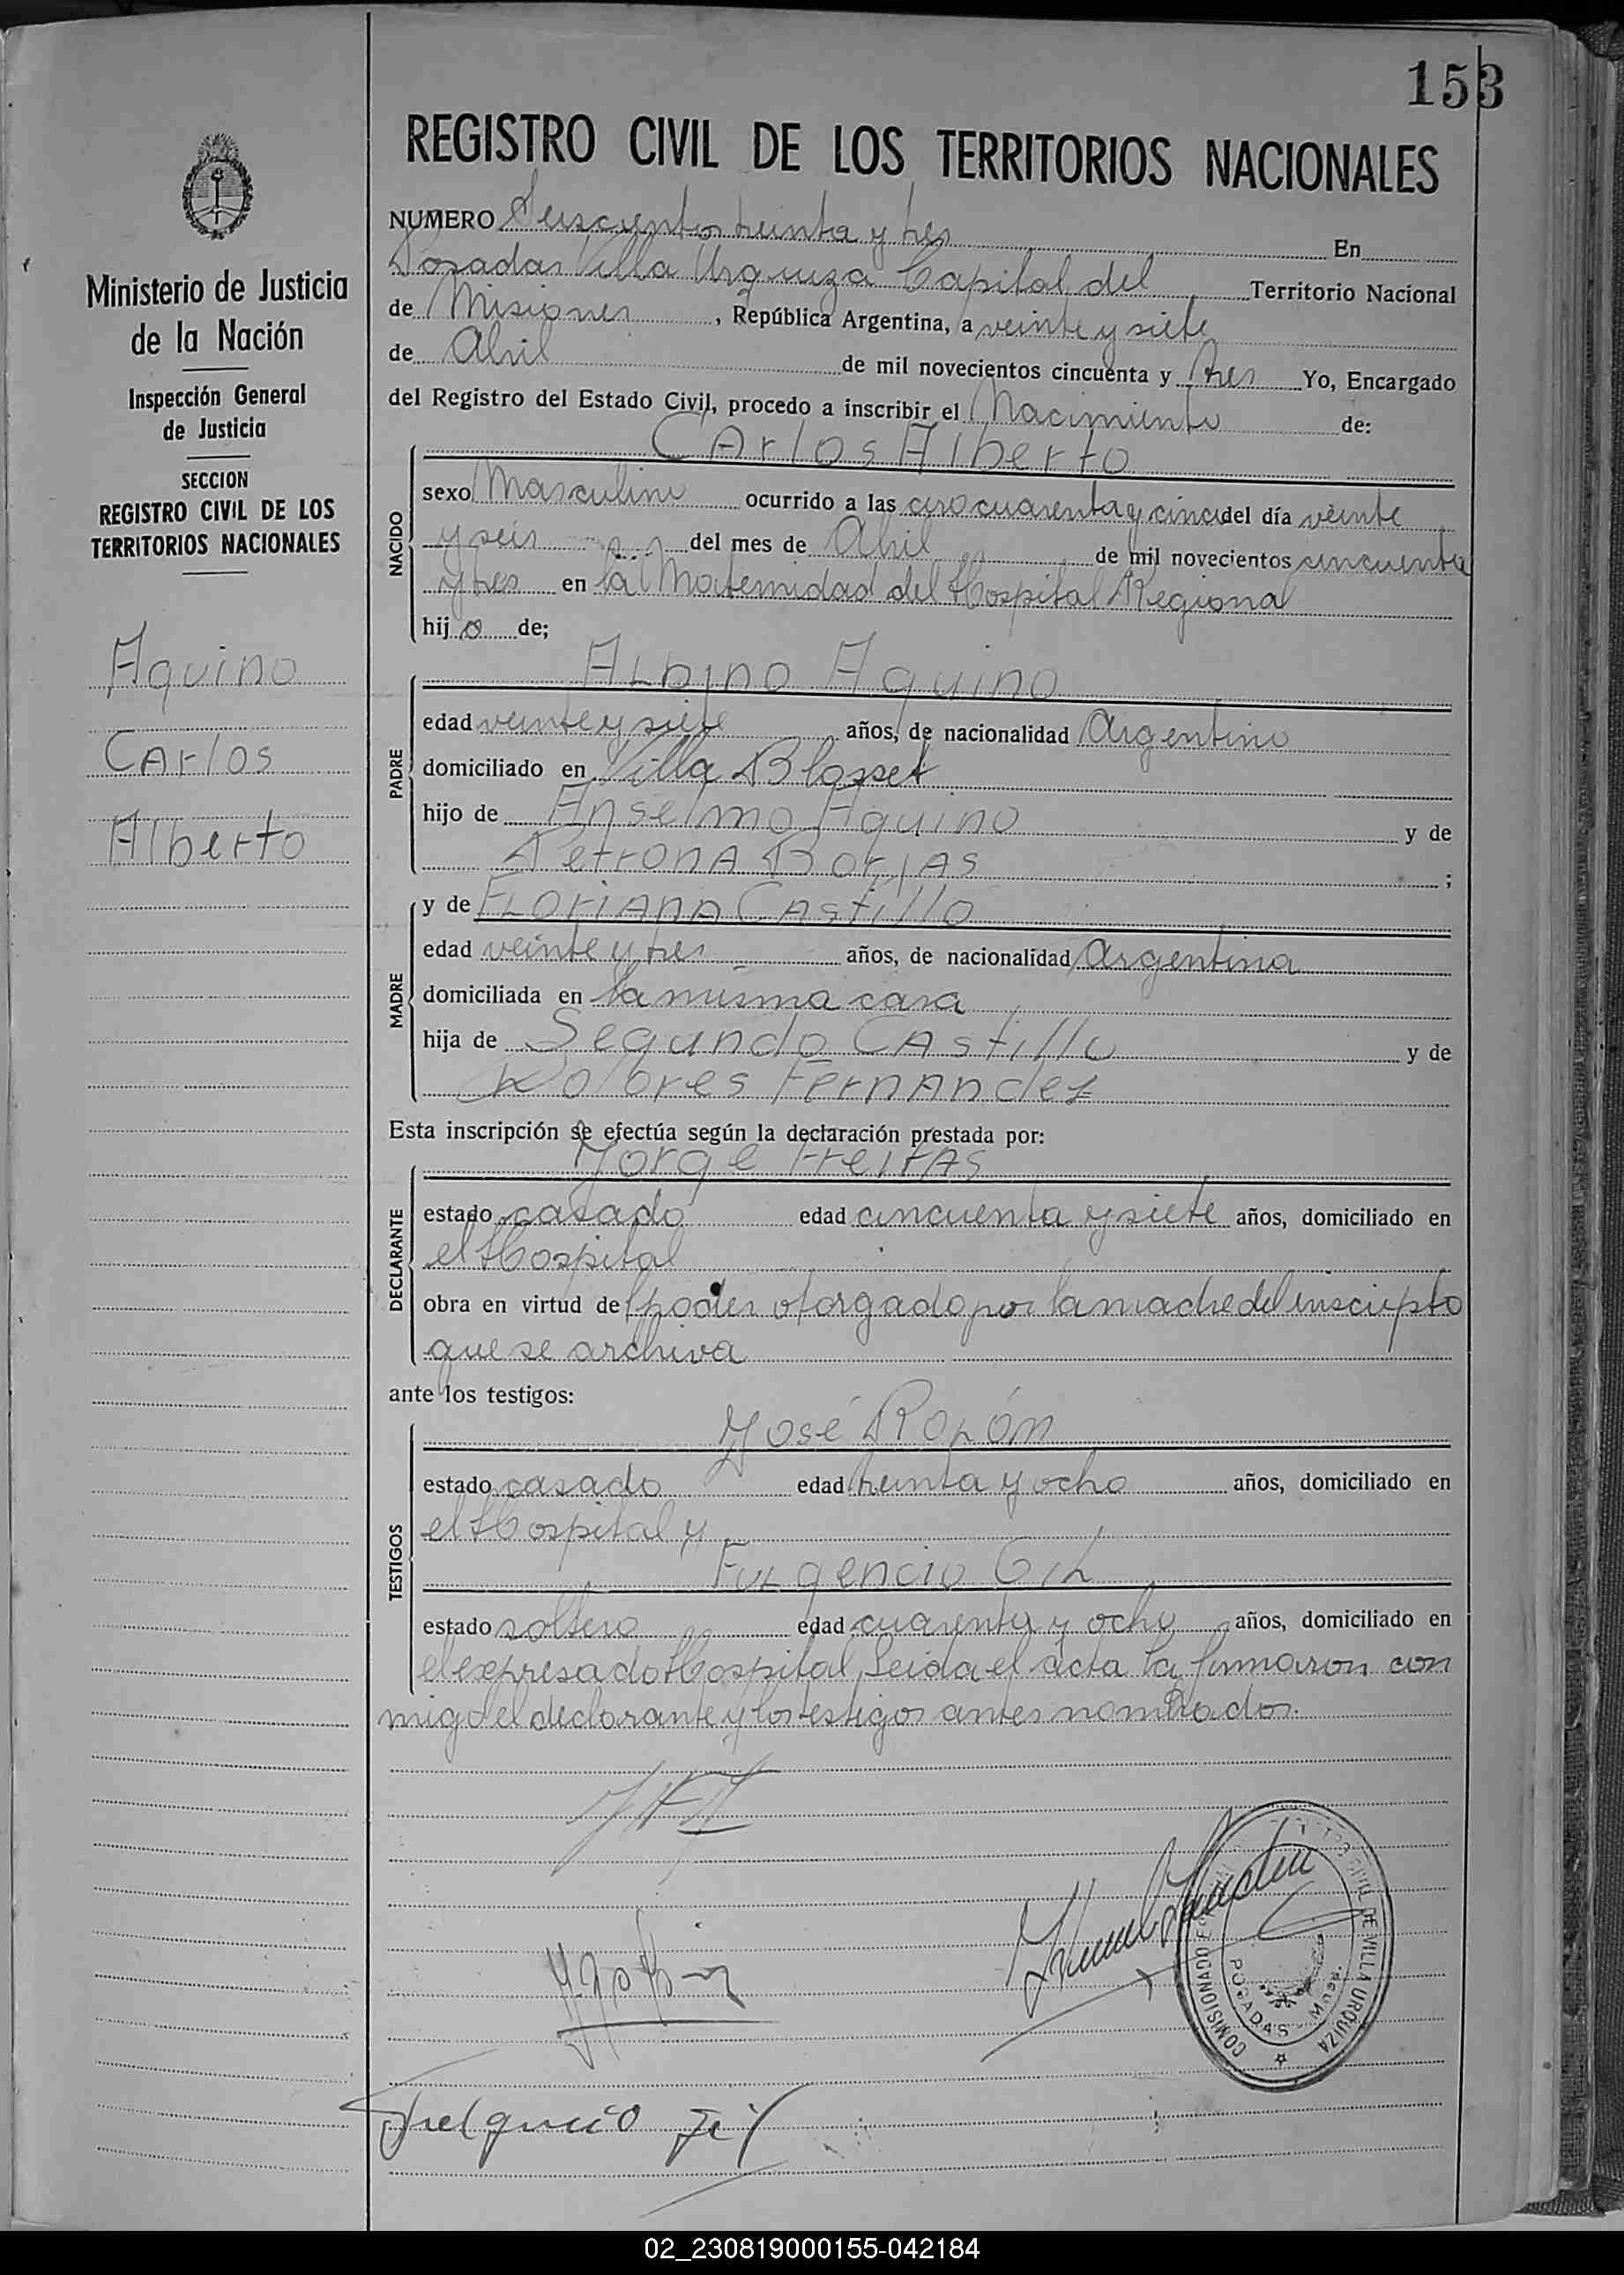 153
REGISTRO CIVIL DE LOS TERRITORIOS NACIONALES
Ministerio de Justicia
de la Nación
Inspección General
de Justicia
SECCION
REGISTRO CIVIL DE LOS
TERRITORIOS NACIONALES
Aquino
Carlos
Alberto
NUMERO Seiscientos treinta y tres En
Posadas Villa Urquiza Capital del Territorio Nacional
de Misiones, República Argentina, a veinte y siete
de Abril de mil novecientos cincuenta y tres Yo, Encargado
del Registro del Estado Civil, procedo a inscribir el Nacimiento de:
Carlos Alberto
NACIDO
sexo Masculino ocurrido a las cero cuarenta y cinco del día veinte
y seis del mes de Abril de mil novecientos cincuenta
y tres en la Maternidad del Hospital Regional
hijo de;
Albino Aquino
PADRE
edad veinte y siete años, de nacionalidad Argentino
domiciliado en Villa Blosset
hijo de Anselmo Aquino y de
Petrona Borjas ;
MADRE
y de Floriana Castillo
edad veinte y tres años, de nacionalidad Argentina
domiciliada en la misma casa
hija de Segundo Castillo y de
Dolores Fernandez
Esta inscripción se efectúa según la declaración prestada por:
Jorge Freitas
DECLARANTE
estado casado edad cincuenta y siete años, domiciliado en
el Hospital
obra en virtud de poder otorgado por la madre del inscripto
que se archiva
ante los testigos:
José Rolón
TESTIGOS
estado casado edad treinta y ocho años, domiciliado en
el Hospital y
Fulgencio Gil
estado soltero edad cuarenta y ocho años, domiciliado en
el expresado Hospital, Leida el acta la firmaron con
migo el declarante y los testigos antes nombrados.
COMISIONADO CIVIL DE VILLA URQUIZA
POSADAS - Mnes.
Fulgencio Gil
02_230819000155-042184